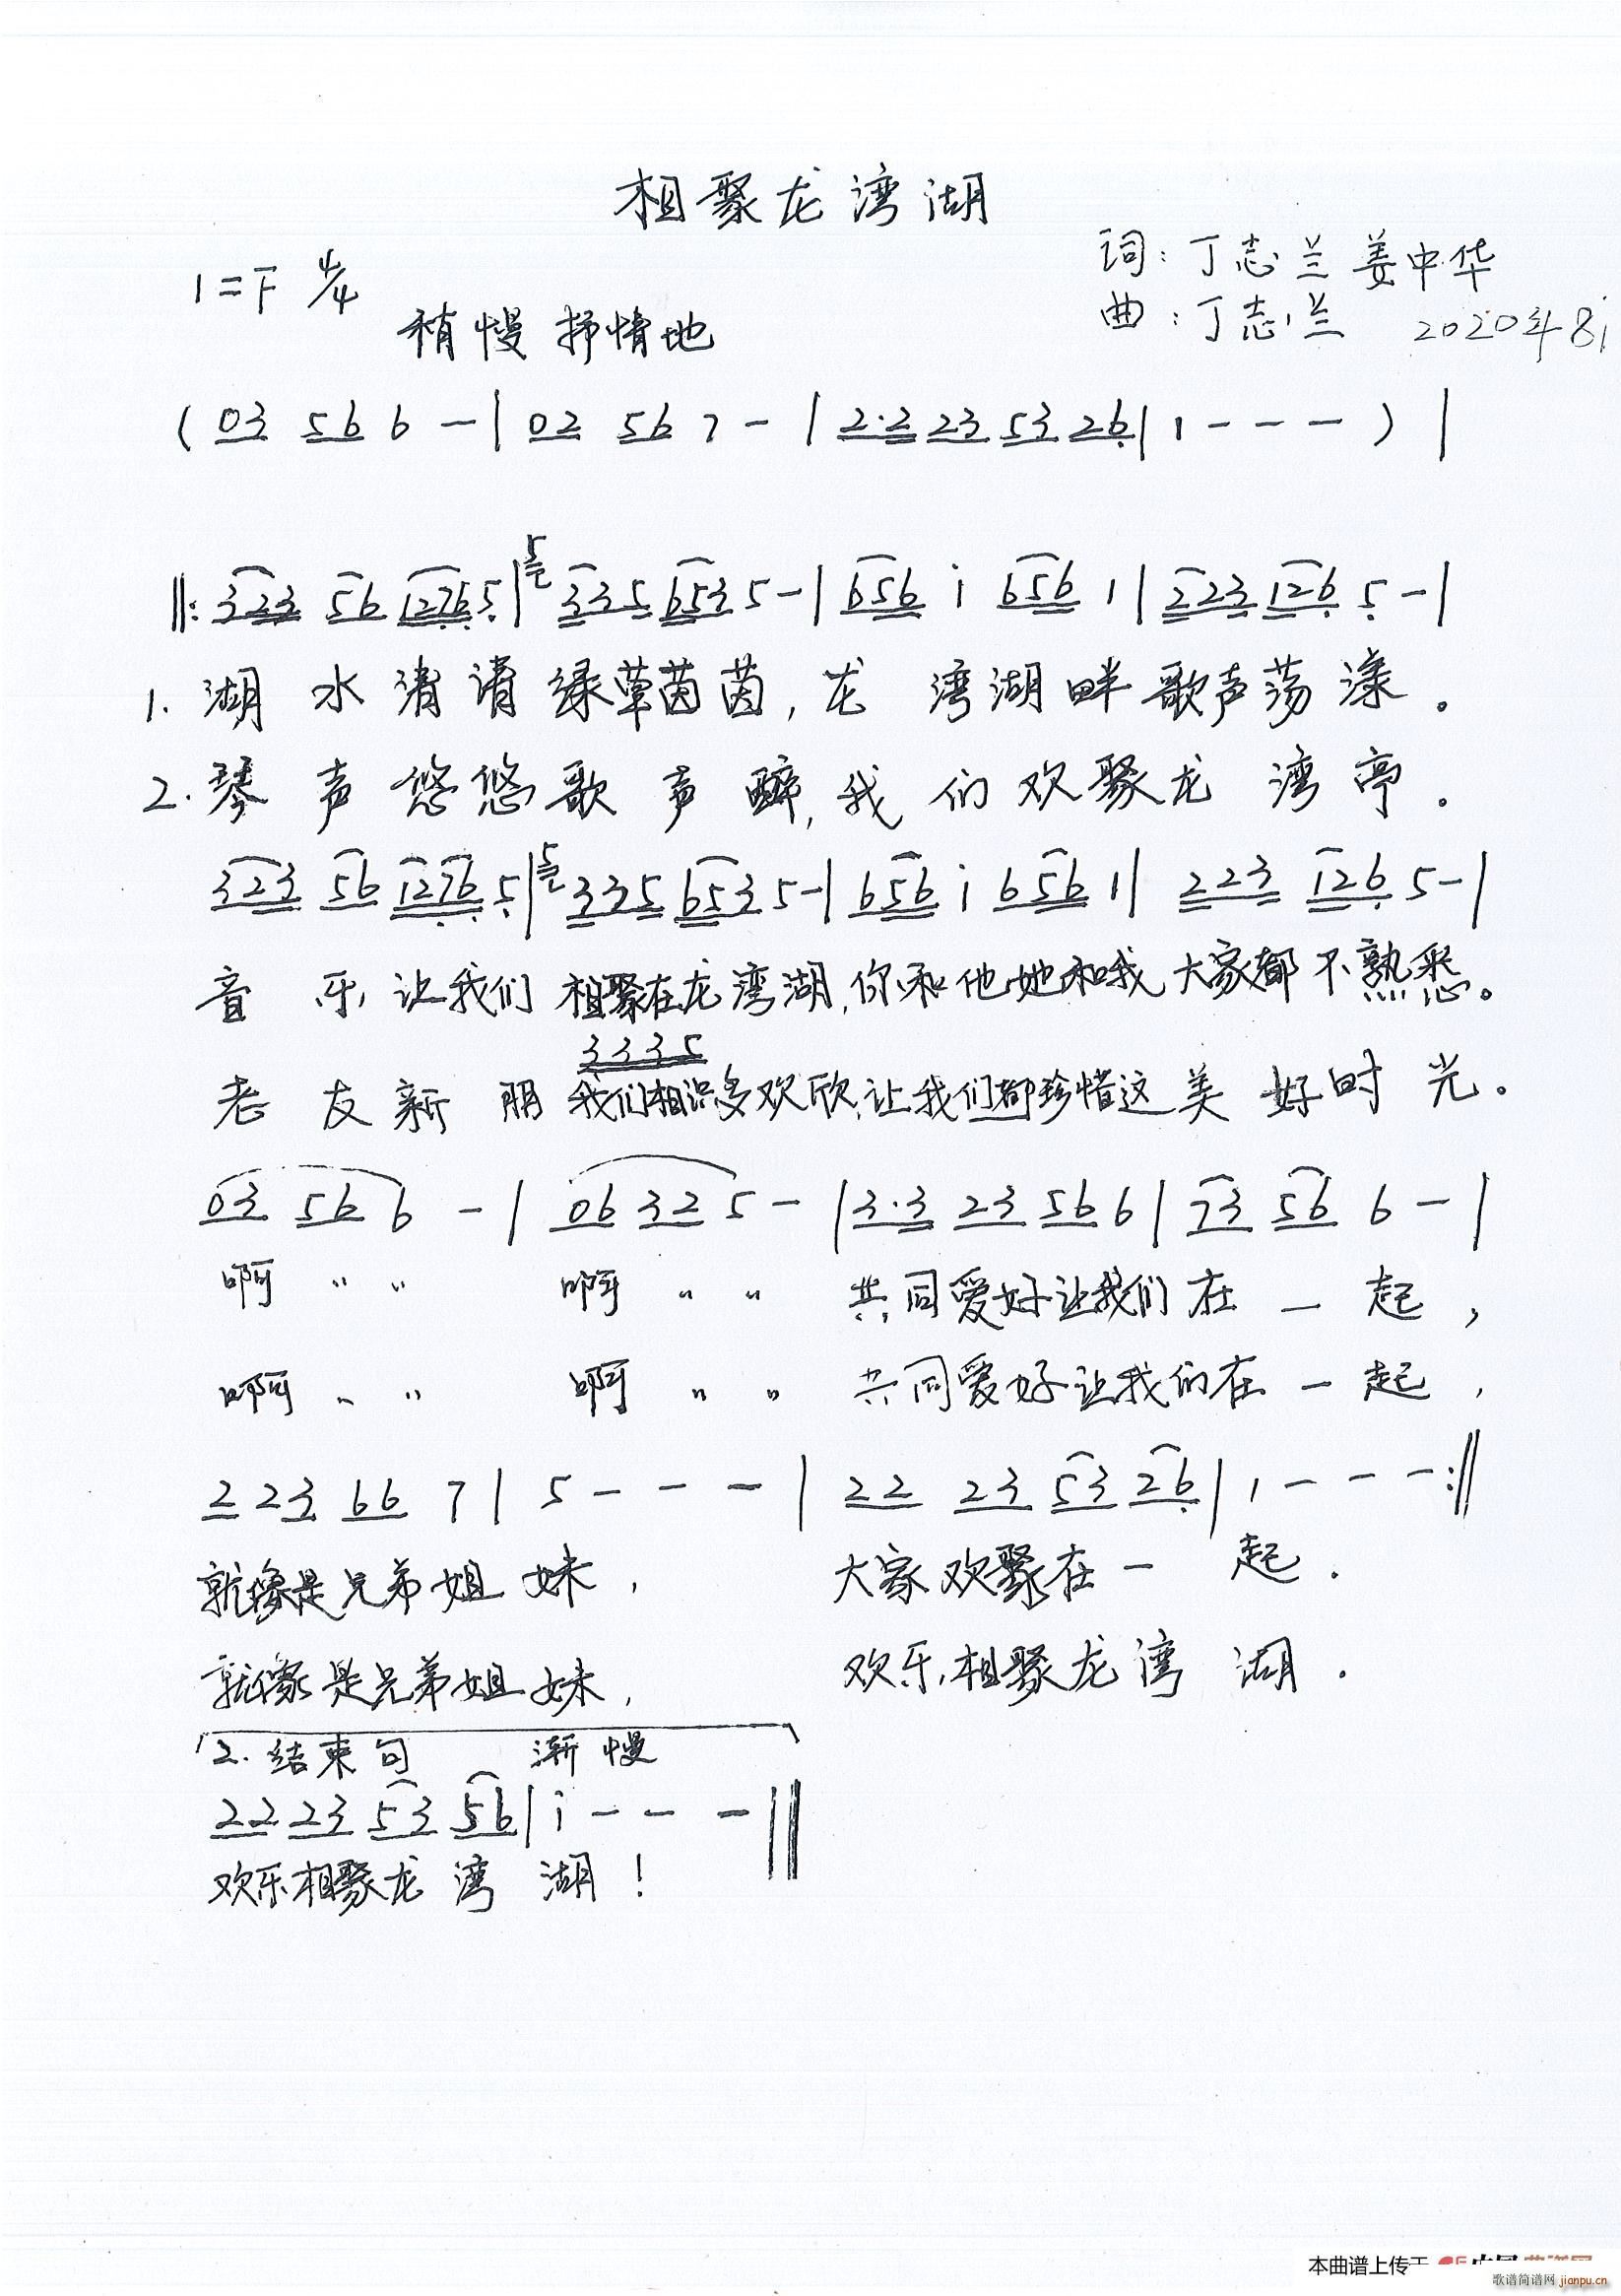 相聚龙湾湖
词：丁志兰 姜中华
1=F 4/4
曲：丁志兰 2020年8
稍慢 抒情地
( 03 56 6 - | 02 56 7 - | 2·2 23 53 26 | 1 - - - ) |
5
‖: 323 56 1276 5 | 335 653 5 - | 656 i 656 1 | 223 126 5 - |
1. 湖 水 清 清 绿草茵茵，龙 湾湖畔歌声荡漾。
2. 琴 声 悠悠歌 声 醉，我 们欢聚龙 湾亭。
5
323 56 1276 5 | 335 653 5 - | 656 i 656 1 | 223 126 5 - |
音 乐 让我们 相聚在龙湾湖，你和他她和我 大家都不熟悉。
3335
老 友 新 朋 我们相识多欢欣，让我们都珍惜这 美 好时 光。
03 56 6 - | 06 32 5 - | 3·3 23 56 6 | 73 56 6 - |
啊 " " 啊 " " 共同爱好让我们 在 一 起，
啊 " " 啊 " " 共同爱好让我们在 一 起，
2 23 66 7 | 5 - - - | 22 23 53 26 | 1 - - - :‖
就像是兄弟姐 妹， 大家欢聚在一 起.
就像是兄弟姐妹， 欢乐相聚龙湾 湖.
2. 结束句 渐慢
22 23 53 56 | i - - - ‖
欢乐相聚龙 湾 湖！
本曲谱上传于
歌谱简谱网 jianpu.cn